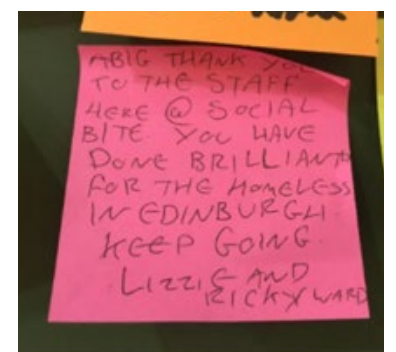 A BIG THANK YOU
TO THE STAFF
HERE @ SOCIAL
BITE YOU HAVE
DONE BRILLIANT
FOR THE HOMELESS
IN EDINBURGH
KEEP GOING
LIZZIE AND
RICKY WARD